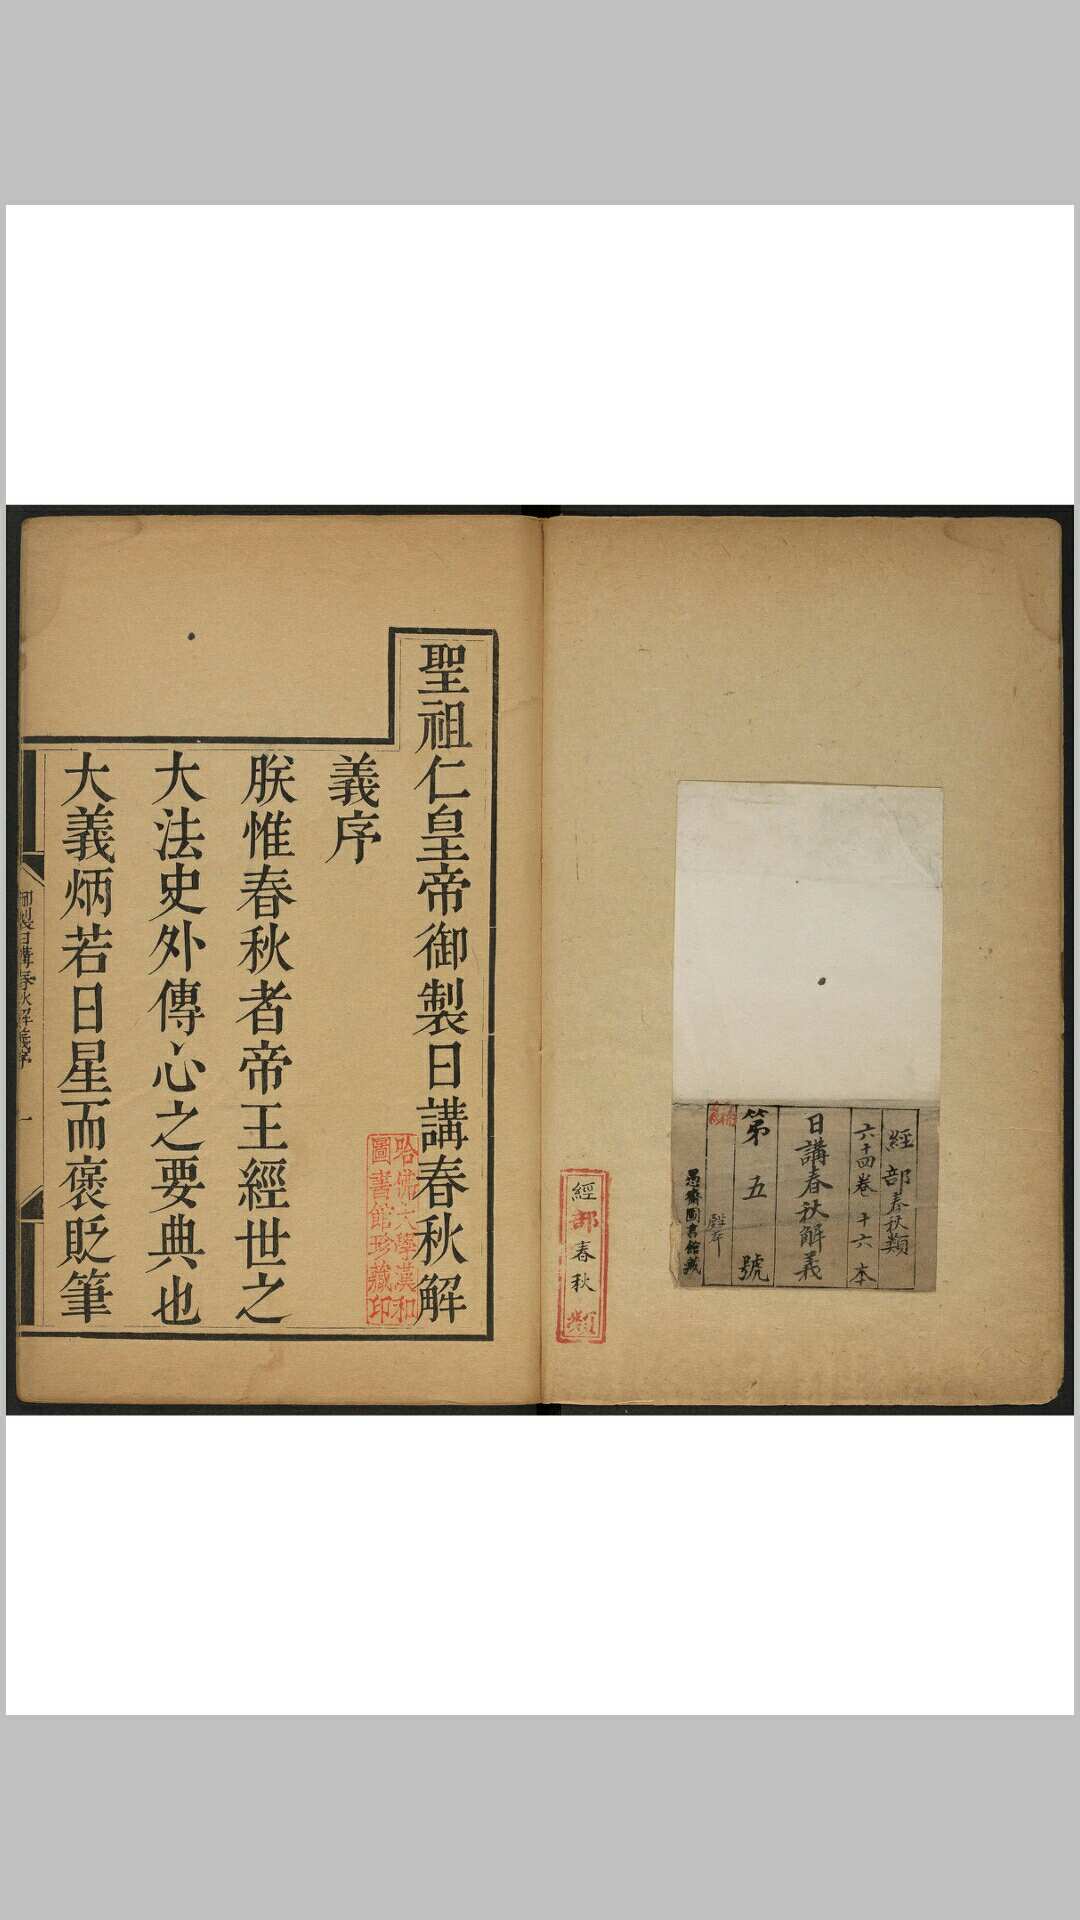 經部春秋類
六十四卷 十六本
日講春秋解義
第五號
愚齋圖書館藏
經部春秋類
聖祖仁皇帝御製日講春秋解
義序
朕惟春秋者帝王經世之
大法史外傳心之要典也
大義炳若日星而褒貶筆
哈佛大學漢和
圖書館珍藏印
御製日講春秋解義序 一